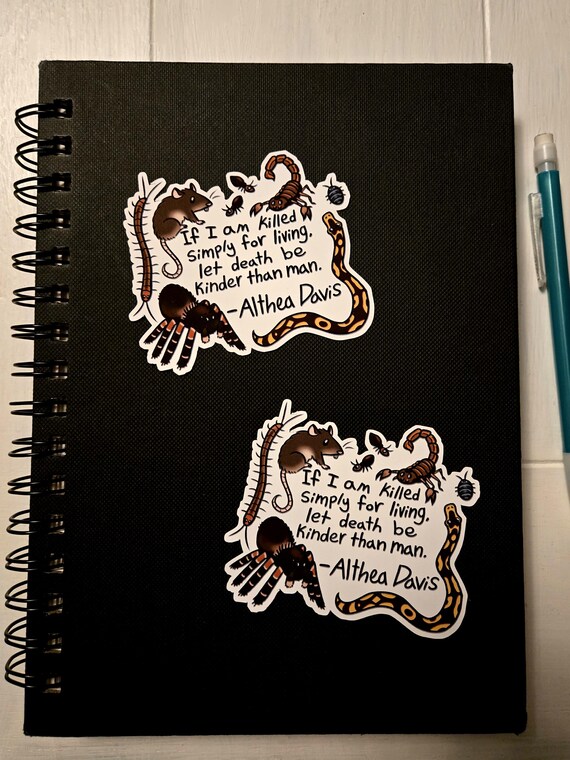 If I am killed
simply for living,
let death be
kinder than man.
-Althea Davis
If I am killed
simply for living,
let death be
kinder than man.
-Althea Davis